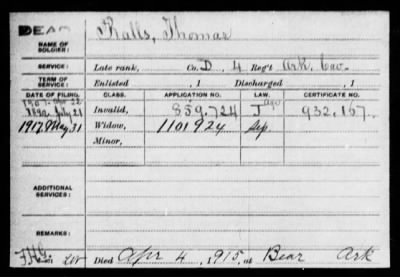 DEAD
NAME OF SOLDIER: Ralls, Thomas
SERVICE: Late rank, Co. D, 4 Reg't Ark. Cav.
TERM OF SERVICE: Enlisted , 1 Discharged , 1
DATE OF FILING. CLASS. APPLICATION NO. LAW. CERTIFICATE NO.
1892 July 21 Invalid, 859.724 J 932.167.
1917 May 31 Widow, 1101924 Sep.
Minor,
ADDITIONAL SERVICES:
REMARKS:
Died Apr 4, 1915, at Bear Ark